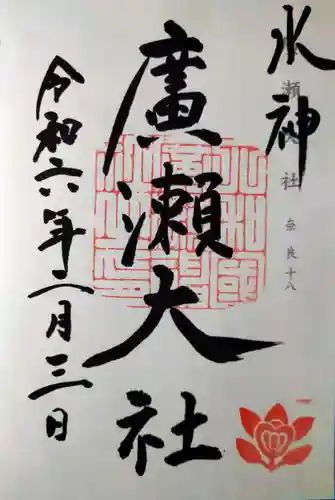 水神
瀬
社
奈良十八
廣瀬大社
令和六年二月三日